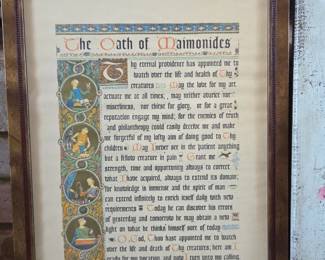 The Oath of Maimonides
Thy eternal providence has appointed me to
watch over the life and health of Thy
creatures May the love for my art
actuate me at all times; may neither avarice nor
miserliness, nor thirst for glory, or for a great
reputation engage my mind; for the enemies of truth
and philanthropy could easily deceive me and make
me forgetful of my lofty aim of doing good to Thy
children May I never see in the patient anything
but a fellow creature in pain Grant me
strength, time and opportunity always to correct
what I have acquired, always to extend its domain;
for knowledge is immense and the spirit of man
can extend infinitely to enrich itself daily with new
requirements Today he can discover his errors
of yesterday and tomorrow he may obtain a new
light on what he thinks himself sure of today
O God, Thou hast appointed me to watch
over the life and death of Thy creatures; here am I
ready for my vocation, and now I turn unto my calling